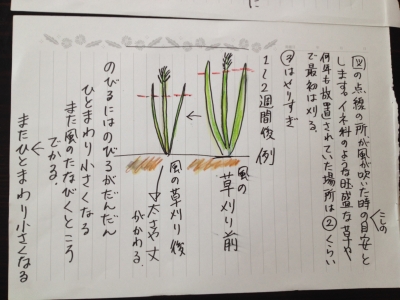 に
の点線の所が風が吹いた時の目安と
こしの
します。イネ科のような旺盛な草や
何年も放置されていた場所は②くらい
で最初は刈る。
③はやりすぎ
1〜2週間後 例
風の
草刈り前
風の草刈り後
太さや丈
がかわる。
のびるにはのびるがだんだん
ひとまわり小さくなる
また風のたなびくところ
でかる。
またひとまわり小さくなる